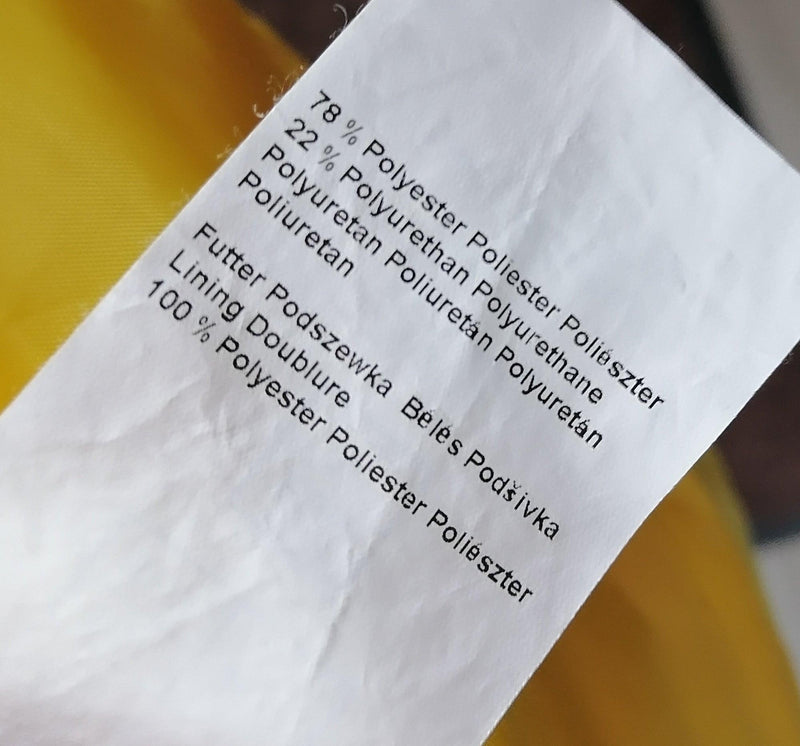 78 % Polyester Poliester Poliészter
22 % Polyurethan Polyurethane
Polyuretan Poliuretán Polyuretán
Poliuretan
Futter Podszewka Bélés Podšívka
Lining Doublure
100 % Polyester Poliester Poliészter